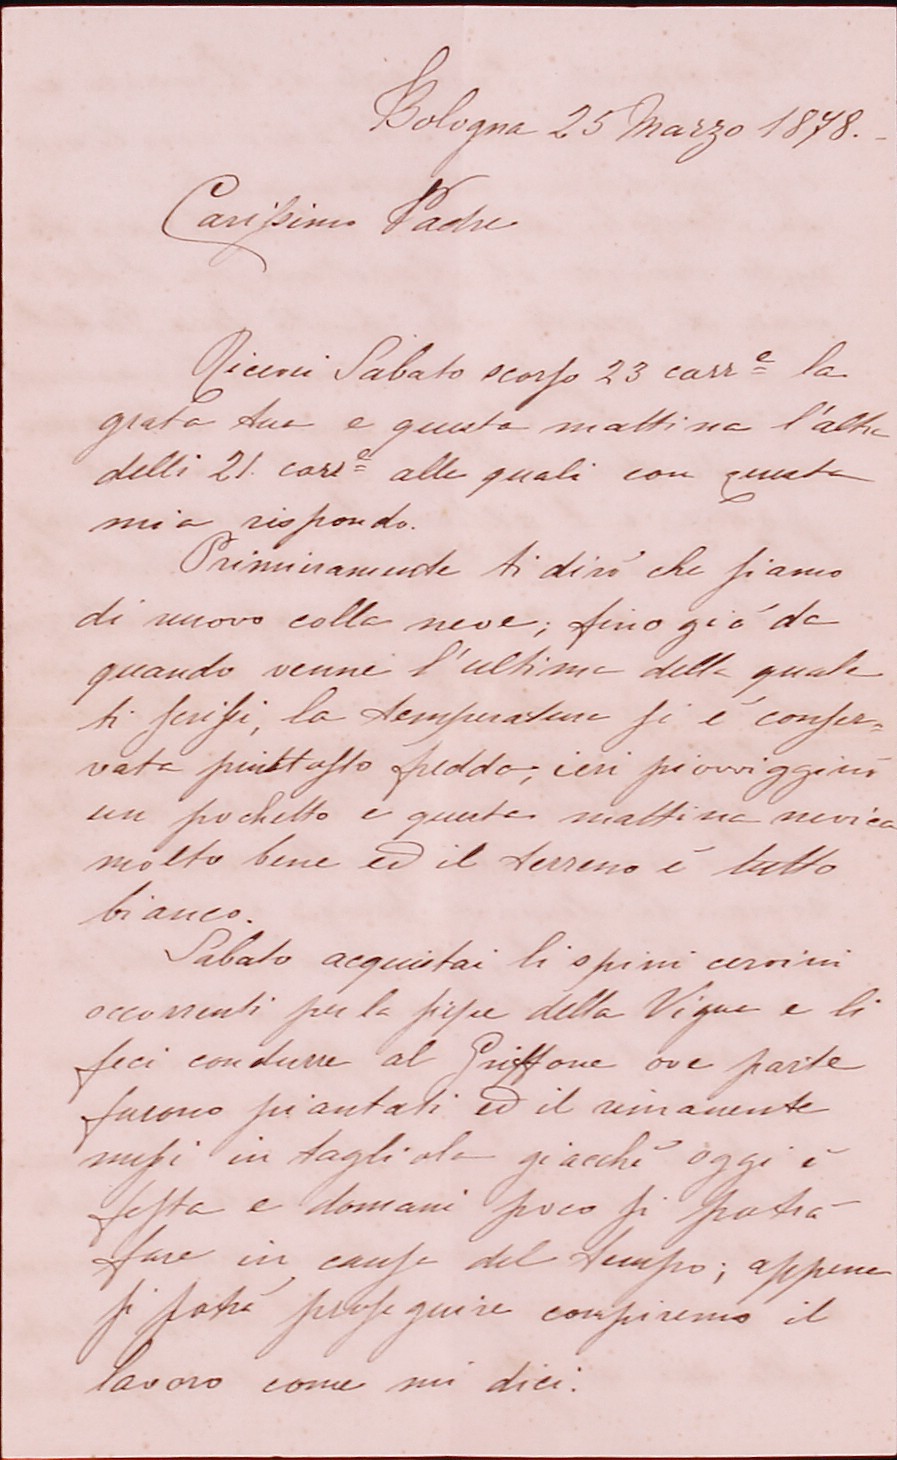 Bologna 25 Marzo 1878.-
Carissimo Padre
Ricevei Sabato scorso 23 corre. la
grata tua e questa mattina l'altra
delli 21. corre. alle quali con questa
mia rispondo.
Primieramente ti dirò che siamo
di nuovo colla neve; fino già da
quando venne l'ultima della quale
ti scrissi, la temperatura si è conser=
vata piuttosto fredda; ieri piovvigginò
un pochetto e questa mattina nevica
molto bene ed il terreno è tutto
bianco.
Sabato acquistai li spini cervini
occorrenti per la siepe della Vigna e li
feci condurre al Griffone ove parte
furono piantati ed il rimanente
messi in tagliola giacchè oggi è
festa e domani poco si potrà
fare in causa del tempo; appena
si potrà proseguire compiremo il
lavoro come mi dici.